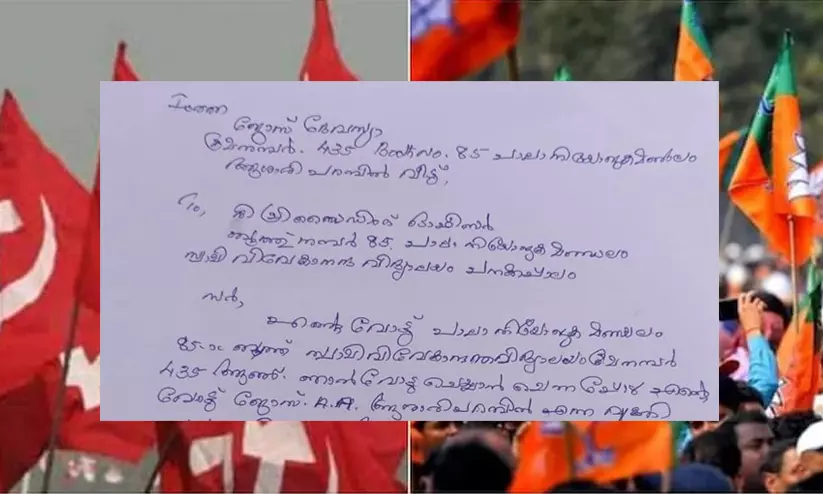 ജോസ് ദേവസ്യാ
ക്രമനമ്പർ. 435 Booth No. 85 പാലാ നിയോജകമണ്ഡലം
വീട്,
To,
ഓഫീസർ
ബൂത്ത് നമ്പർ 85 പാലാ നിയോജക മണ്ഡലം
സ്വാമി വിവേകാനന്ദ വിദ്യാലയം പനക്കപ്പാലം
സർ,
എന്റെ വോട്ട് പാലാ നിയോജക മണ്ഡലം
85-ാം ബൂത്ത് സ്വാമി വിവേകാനന്ദവിദ്യാലയം ക്രമനമ്പർ
435 ആണ്. ഞാൻ വോട്ട് ചെയ്യാൻ ചെന്നപ്പോൾ എന്റെ
വോട്ട് ജോസ്. A.A. എന്ന വ്യക്തി